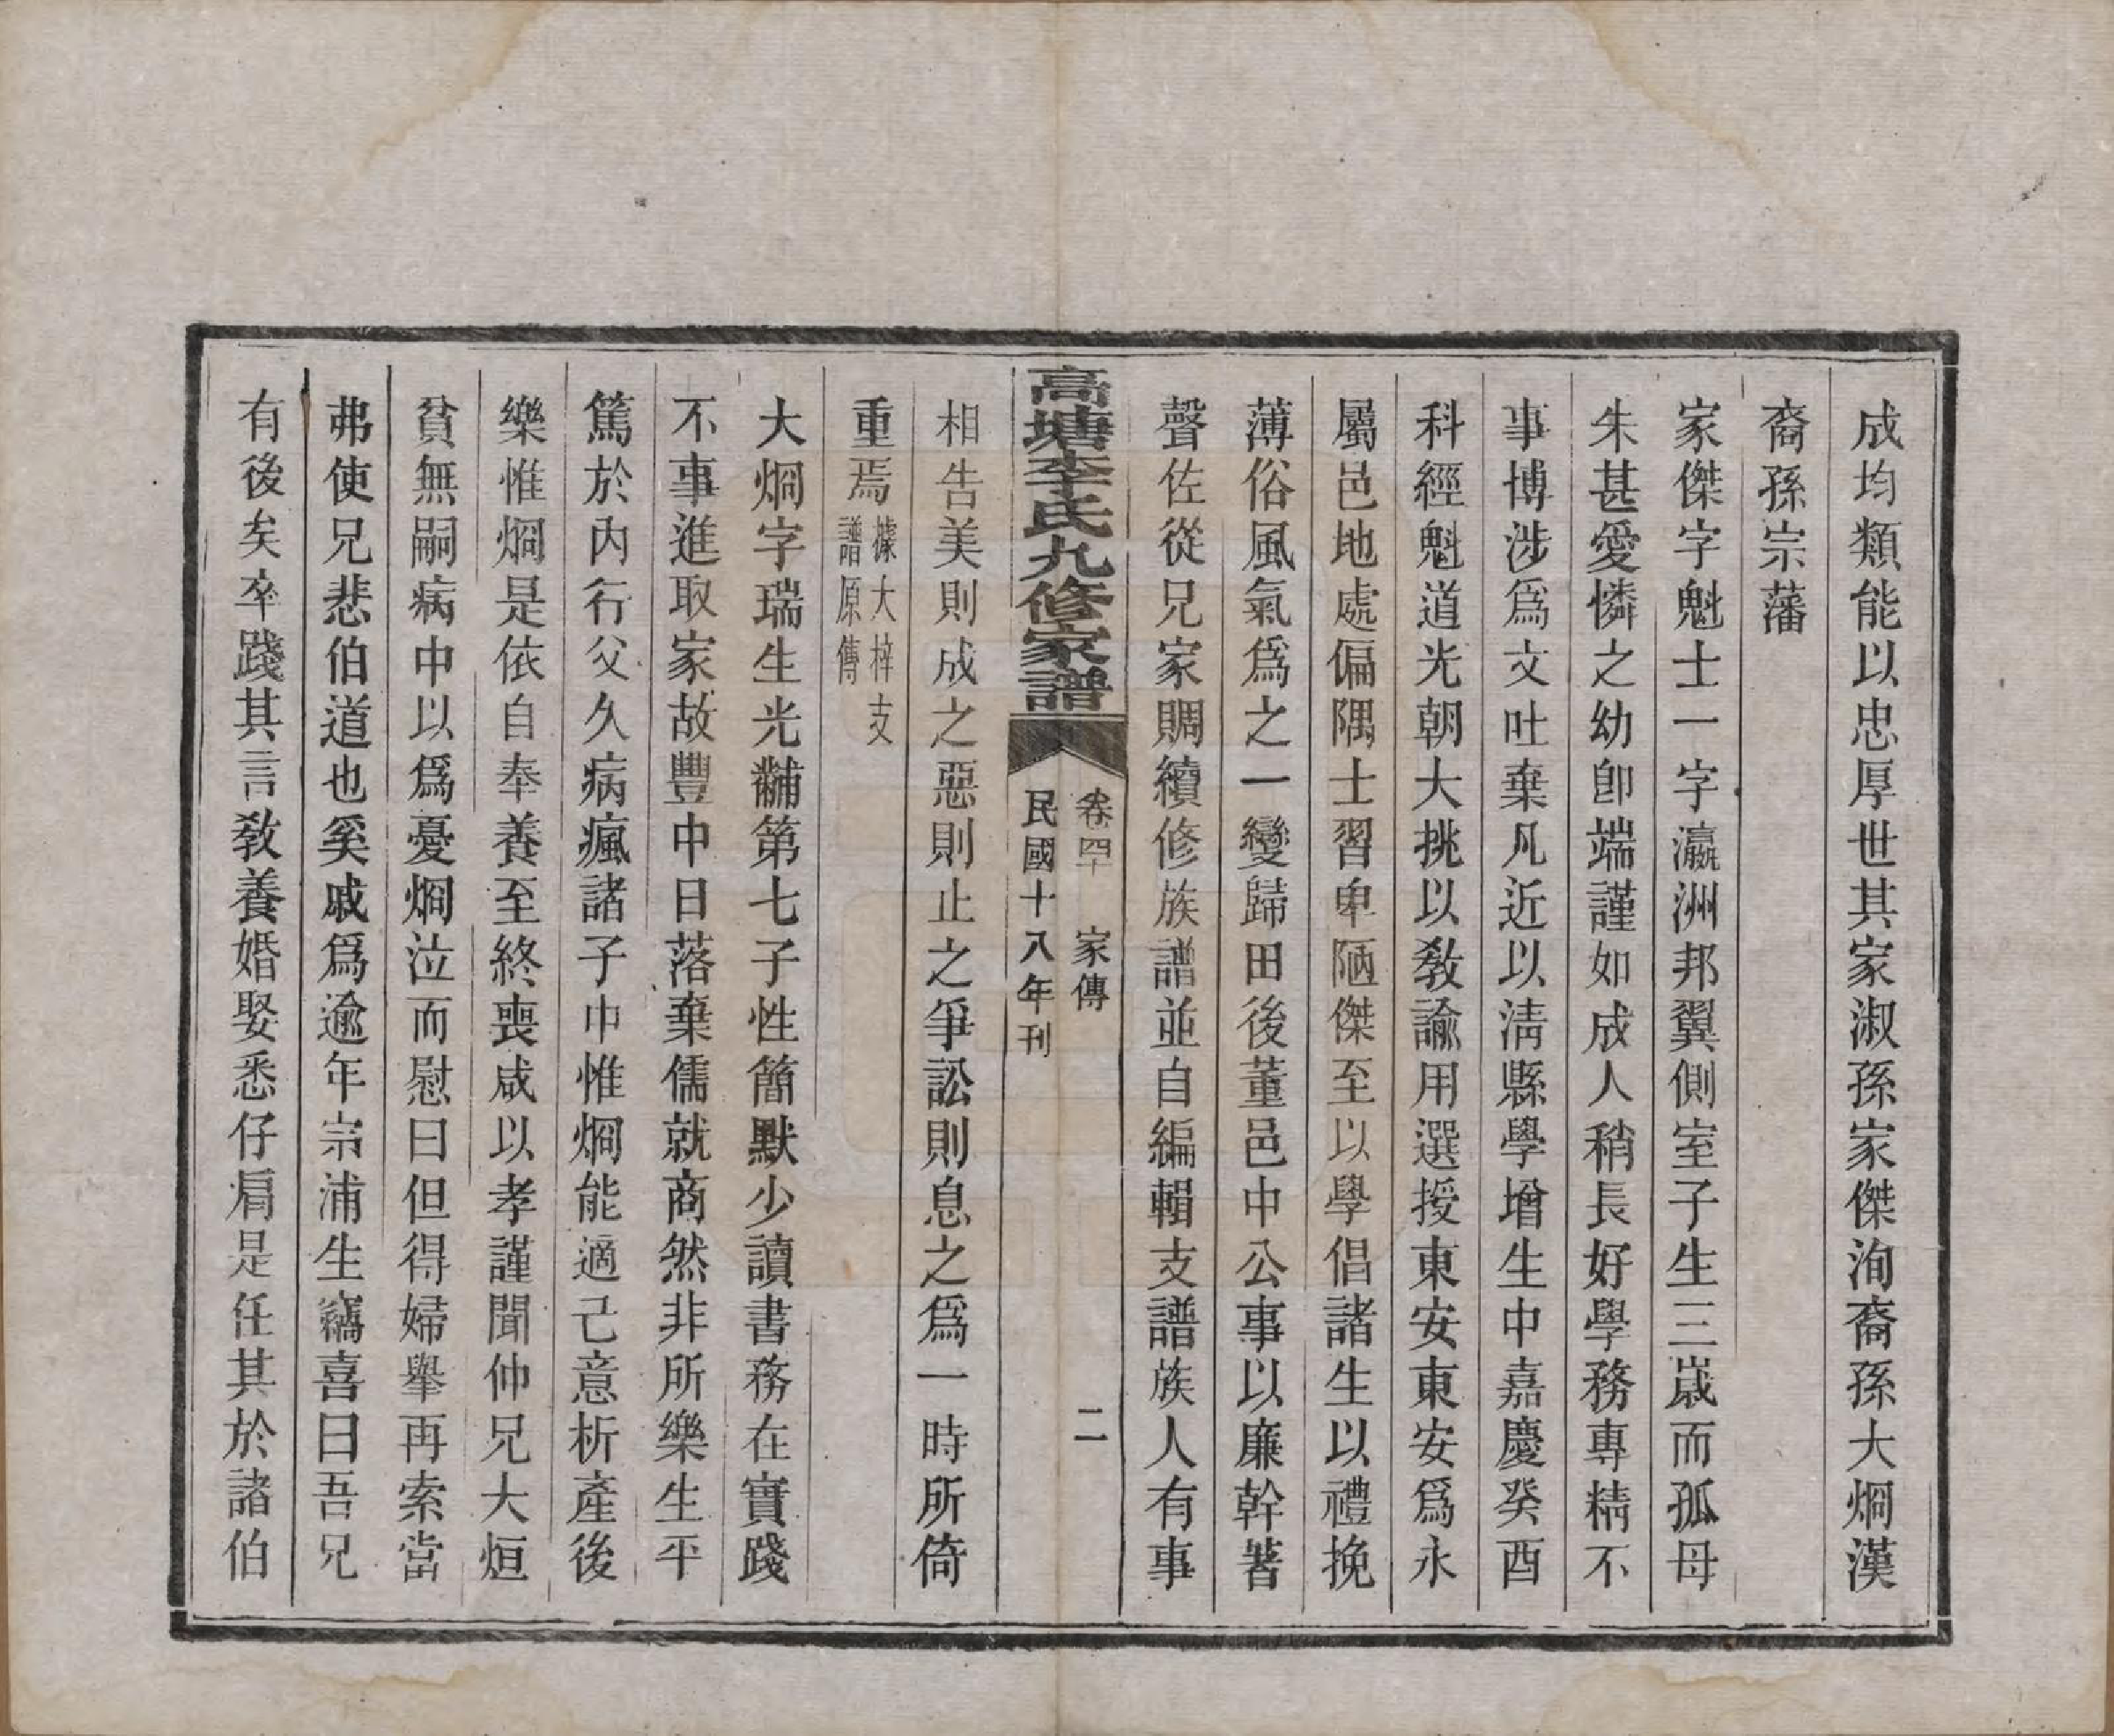 成均類能以忠厚世其家淑孫家傑洵裔孫大烱漢
裔孫宗藩
家傑字魁士一字瀛洲邦翼側室子生三歲而孤母
朱甚愛憐之幼卽端謹如成人稍長好學務專精不
事博涉爲文吐棄凡近以淸縣學增生中嘉慶癸酉
科經魁道光朝大挑以敎諭用選授東安東安爲永
屬邑地處偏隅士習卑陋傑至以學倡諸生以禮挽
薄俗風氣爲之一變歸田後董邑中公事以廉幹著
聲佐從兄家賙續修族譜並自編輯支譜族人有事
高塘李氏九修家譜
卷四 家傳
二
民國十八年刊
相吿美則成之惡則止之爭訟則息之爲一時所倚
重焉據大梓支
譜原傳
大烱字瑞生光黼第七子性簡默少讀書務在實踐
不事進取家故豐中日落棄儒就商然非所樂生平
篤於內行父久病瘋諸子中惟烱能適己意析產後
樂惟烱是依自奉養至終喪咸以孝謹聞仲兄大烜
貧無嗣病中以爲憂烱泣而慰曰但得婦舉再索當
弗使兄悲伯道也奚戚爲逾年宗浦生竊喜曰吾兄
有後矣卒踐其言敎養婚娶悉仔肩是任其於諸伯